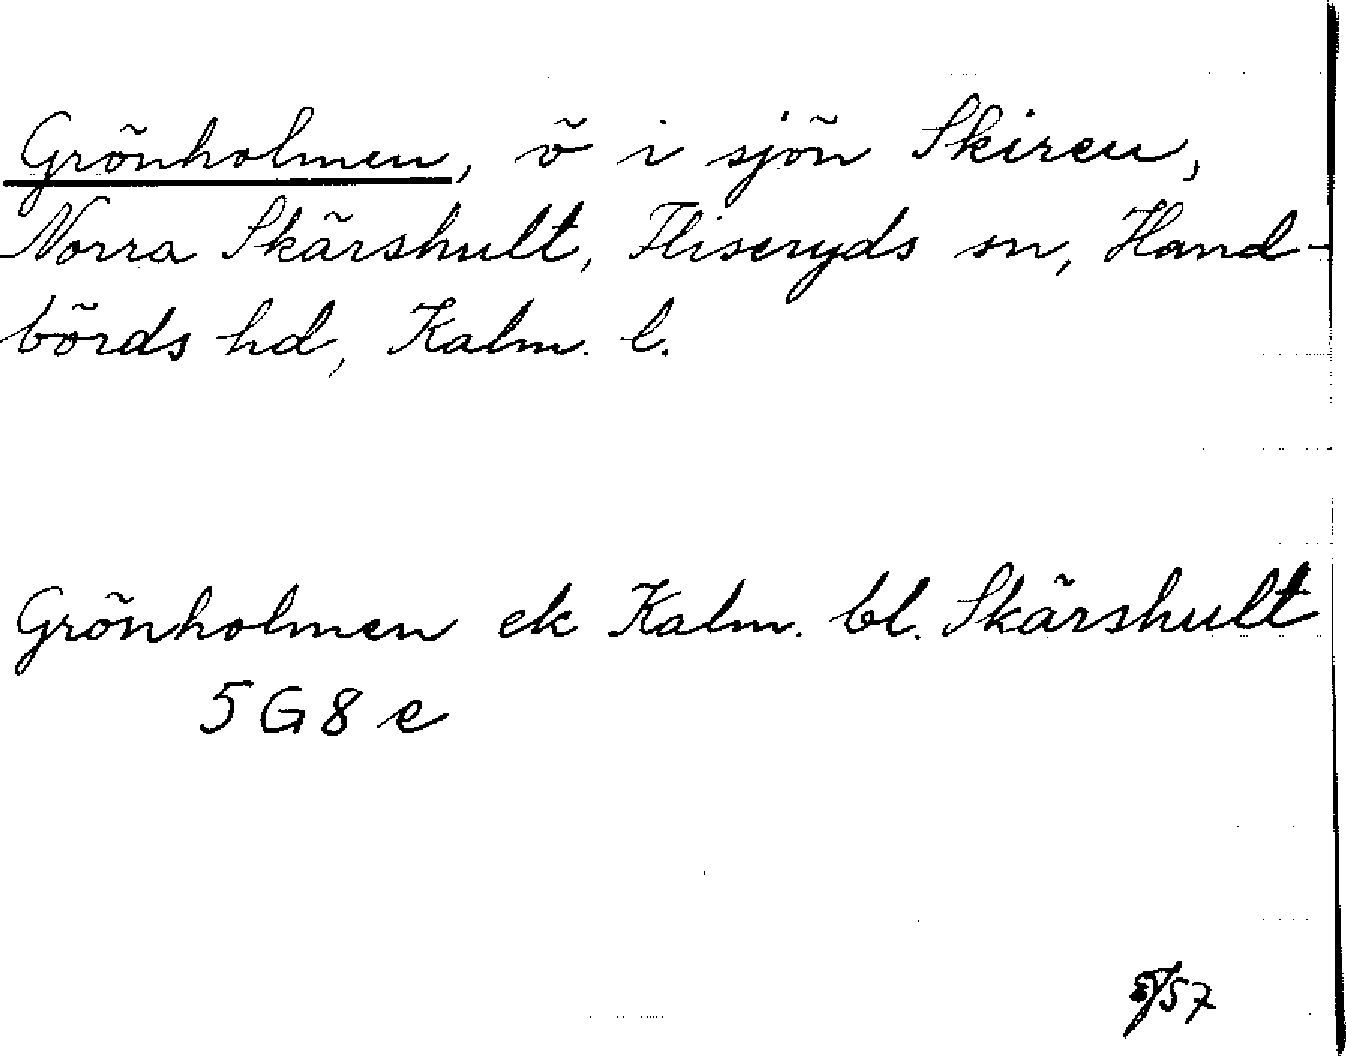 Grönholmen, ö i sjön Skiren,
Norra Skärshult, Fliseryds sn, Hand-
börds hd, Kalm. l.
Grönholmen ek Kalm. bl. Skärshult
5 G 8 e
/57